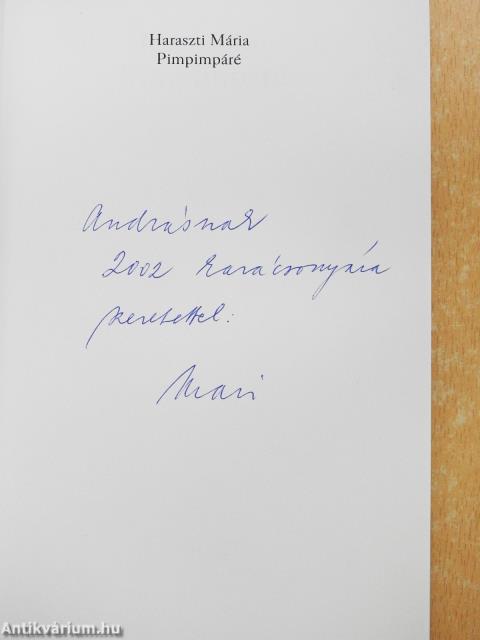 Haraszti Mária
Pimpimpáré
Andrásnak
2002 karácsonyára
szeretettel:
Mari
Antikvárium.hu